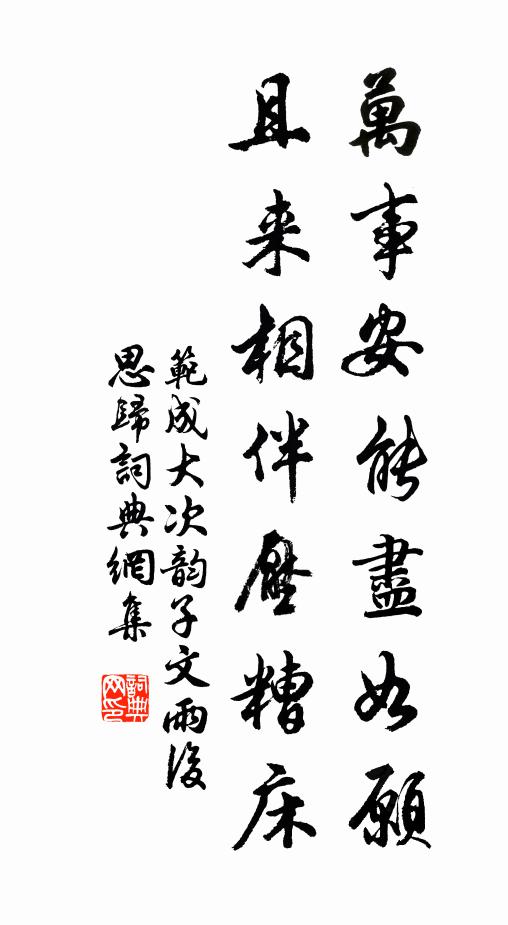 萬事安能盡如願
且来相伴壓糟床
範成大次韵子文雨後
思歸詞典網集
詞典
网印